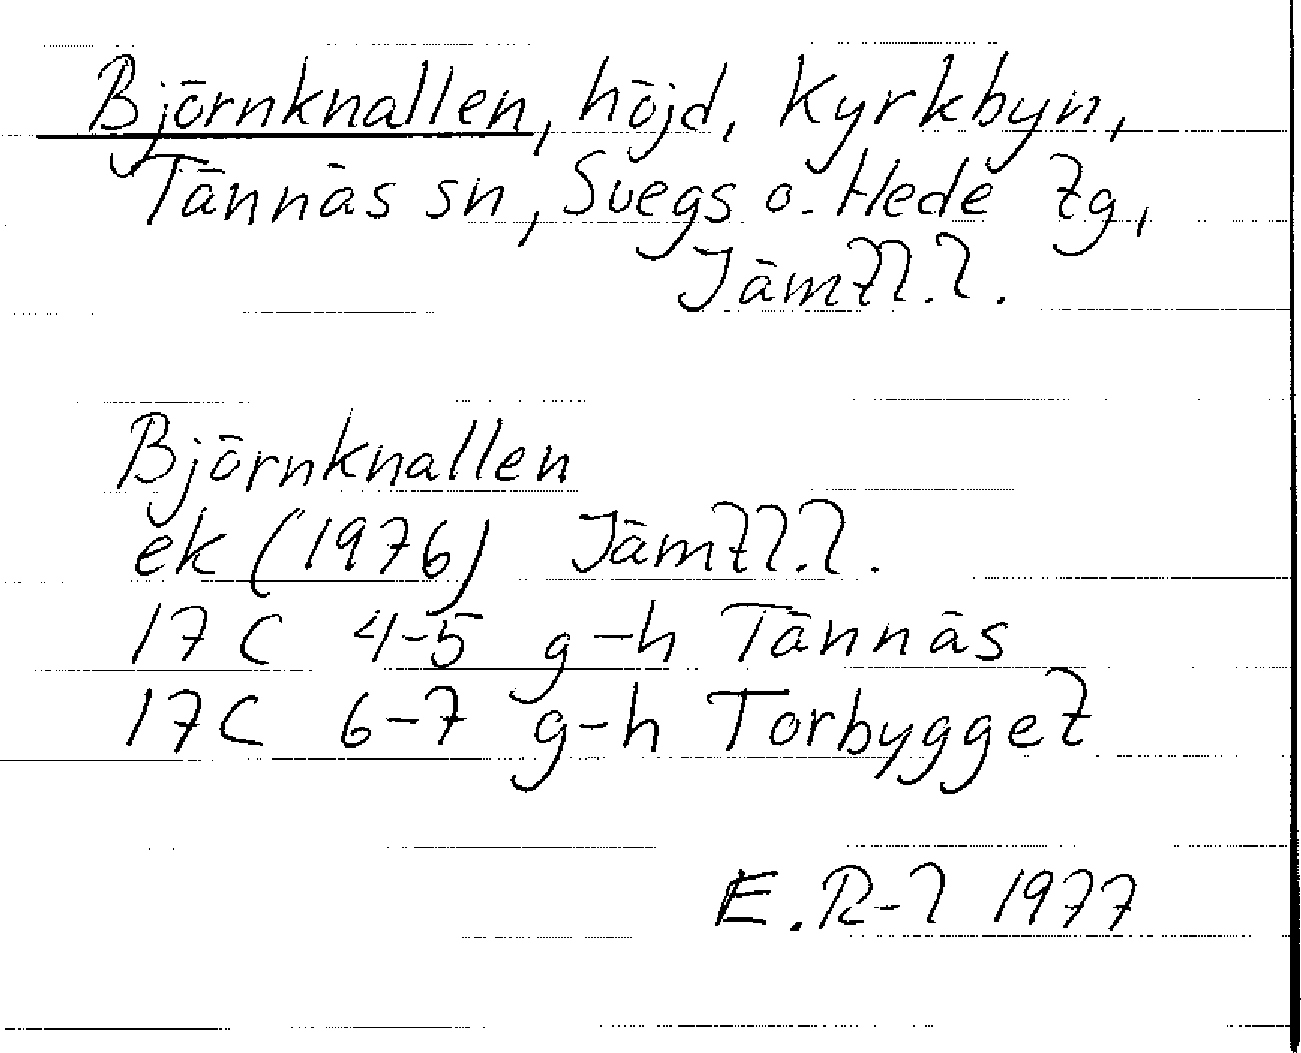 Björnknallen, höjd, Kyrkbyn,
Tännäs sn, Svegs o. Hede tg,
Jämtl. l.
Björnknallen
ek (1976) Jämtl. l.
17 C 4-5 g-h Tännäs
17C 6-7 g-h Torbygget
E. R-l 1977